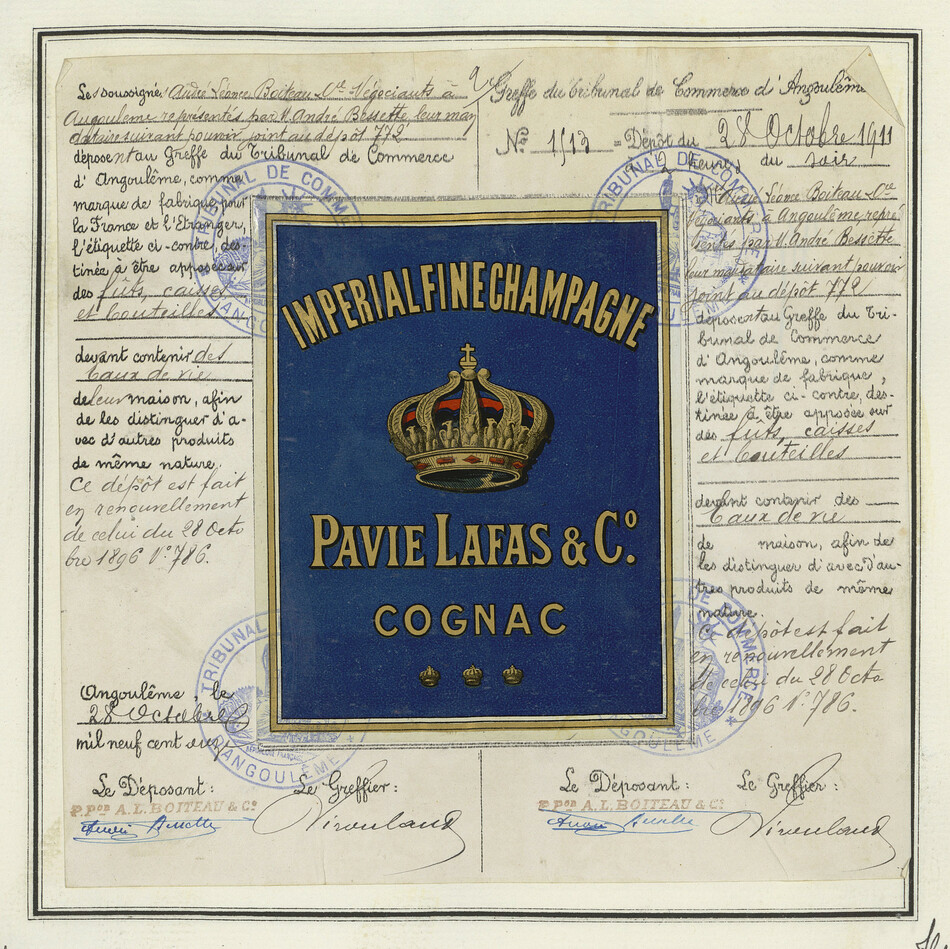 Les soussignés André Léonce Boiteau & Cie Négociants à
Angoulême représentés par M. André Bessette, leur man
dataire suivant pouvoir joint au dépôt 772
déposent au Greffe du Tribunal de Commerce
d'Angoulême, comme
marque de fabrique pour
la France et l'Etranger,
l'étiquette ci-contre, des-
tinée à être apposée sur
des fûts, caisses
et bouteilles
devant contenir des
Eaux de vie
de leur maison, afin
de les distinguer d'a-
vec d'autres produits
de même nature.
Ce dépôt est fait
en renouvellement
de celui du 28 Octo
bre 1896 N° 786.
Angoulême, le
28 Octobre
mil neuf cent onze
Le Déposant:
Le Greffier:
P. Pon A. L. BOITEAU & Co
André Bessette
IMPERIAL FINE CHAMPAGNE
PAVIE LAFAS & Co.
COGNAC
Greffe du Tribunal de Commerce d'Angoulême
No 1513 Dépôt du 28 Octobre 1911
2 heures du soir
André Léonce Boiteau & Cie
Négociants à Angoulême repré
sentés par M. André Bessette
leur mandataire suivant pouvoir
joint au dépôt 772
déposent au Greffe du Tri-
bunal de Commerce
d'Angoulême, comme
marque de fabrique,
l'étiquette ci-contre, des-
tinée à être apposée sur
des fûts, caisses
et bouteilles
devant contenir des
Eaux de vie
de maison, afin de
les distinguer d'avec d'au-
tres produits de même
nature.
Ce dépôt est fait
en renouvellement
de celui du 28 Octo
bre 1896 N° 786.
Le Déposant:
Le Greffier:
P. Pon A. L. BOITEAU & Co
André Bessette
TRIBUNAL DE COMMERCE
D'ANGOULEME
TRIBUNAL DE COMMERCE
TRIBUNAL
D'ANGOULEME
DE COMMERCE